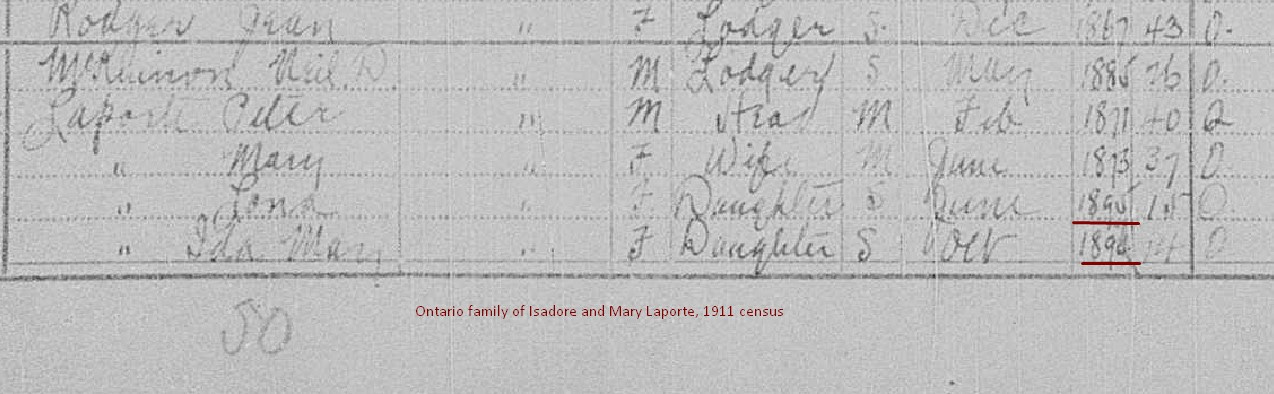 Rodger Jean " F Lodger S. Dec 1867 43 O.
McKinnon Neil D. " M Lodger S May 1885 26 O.
Laporte Peter " M Head M Feb 1871 40 Q
" Mary " F Wife M June 1873 37 O.
" Lena " F Daughter S June 1895 15 O
" Ida Mary " F Daughter S Oct 1896 14 O
Ontario family of Isadore and Mary Laporte, 1911 census
50